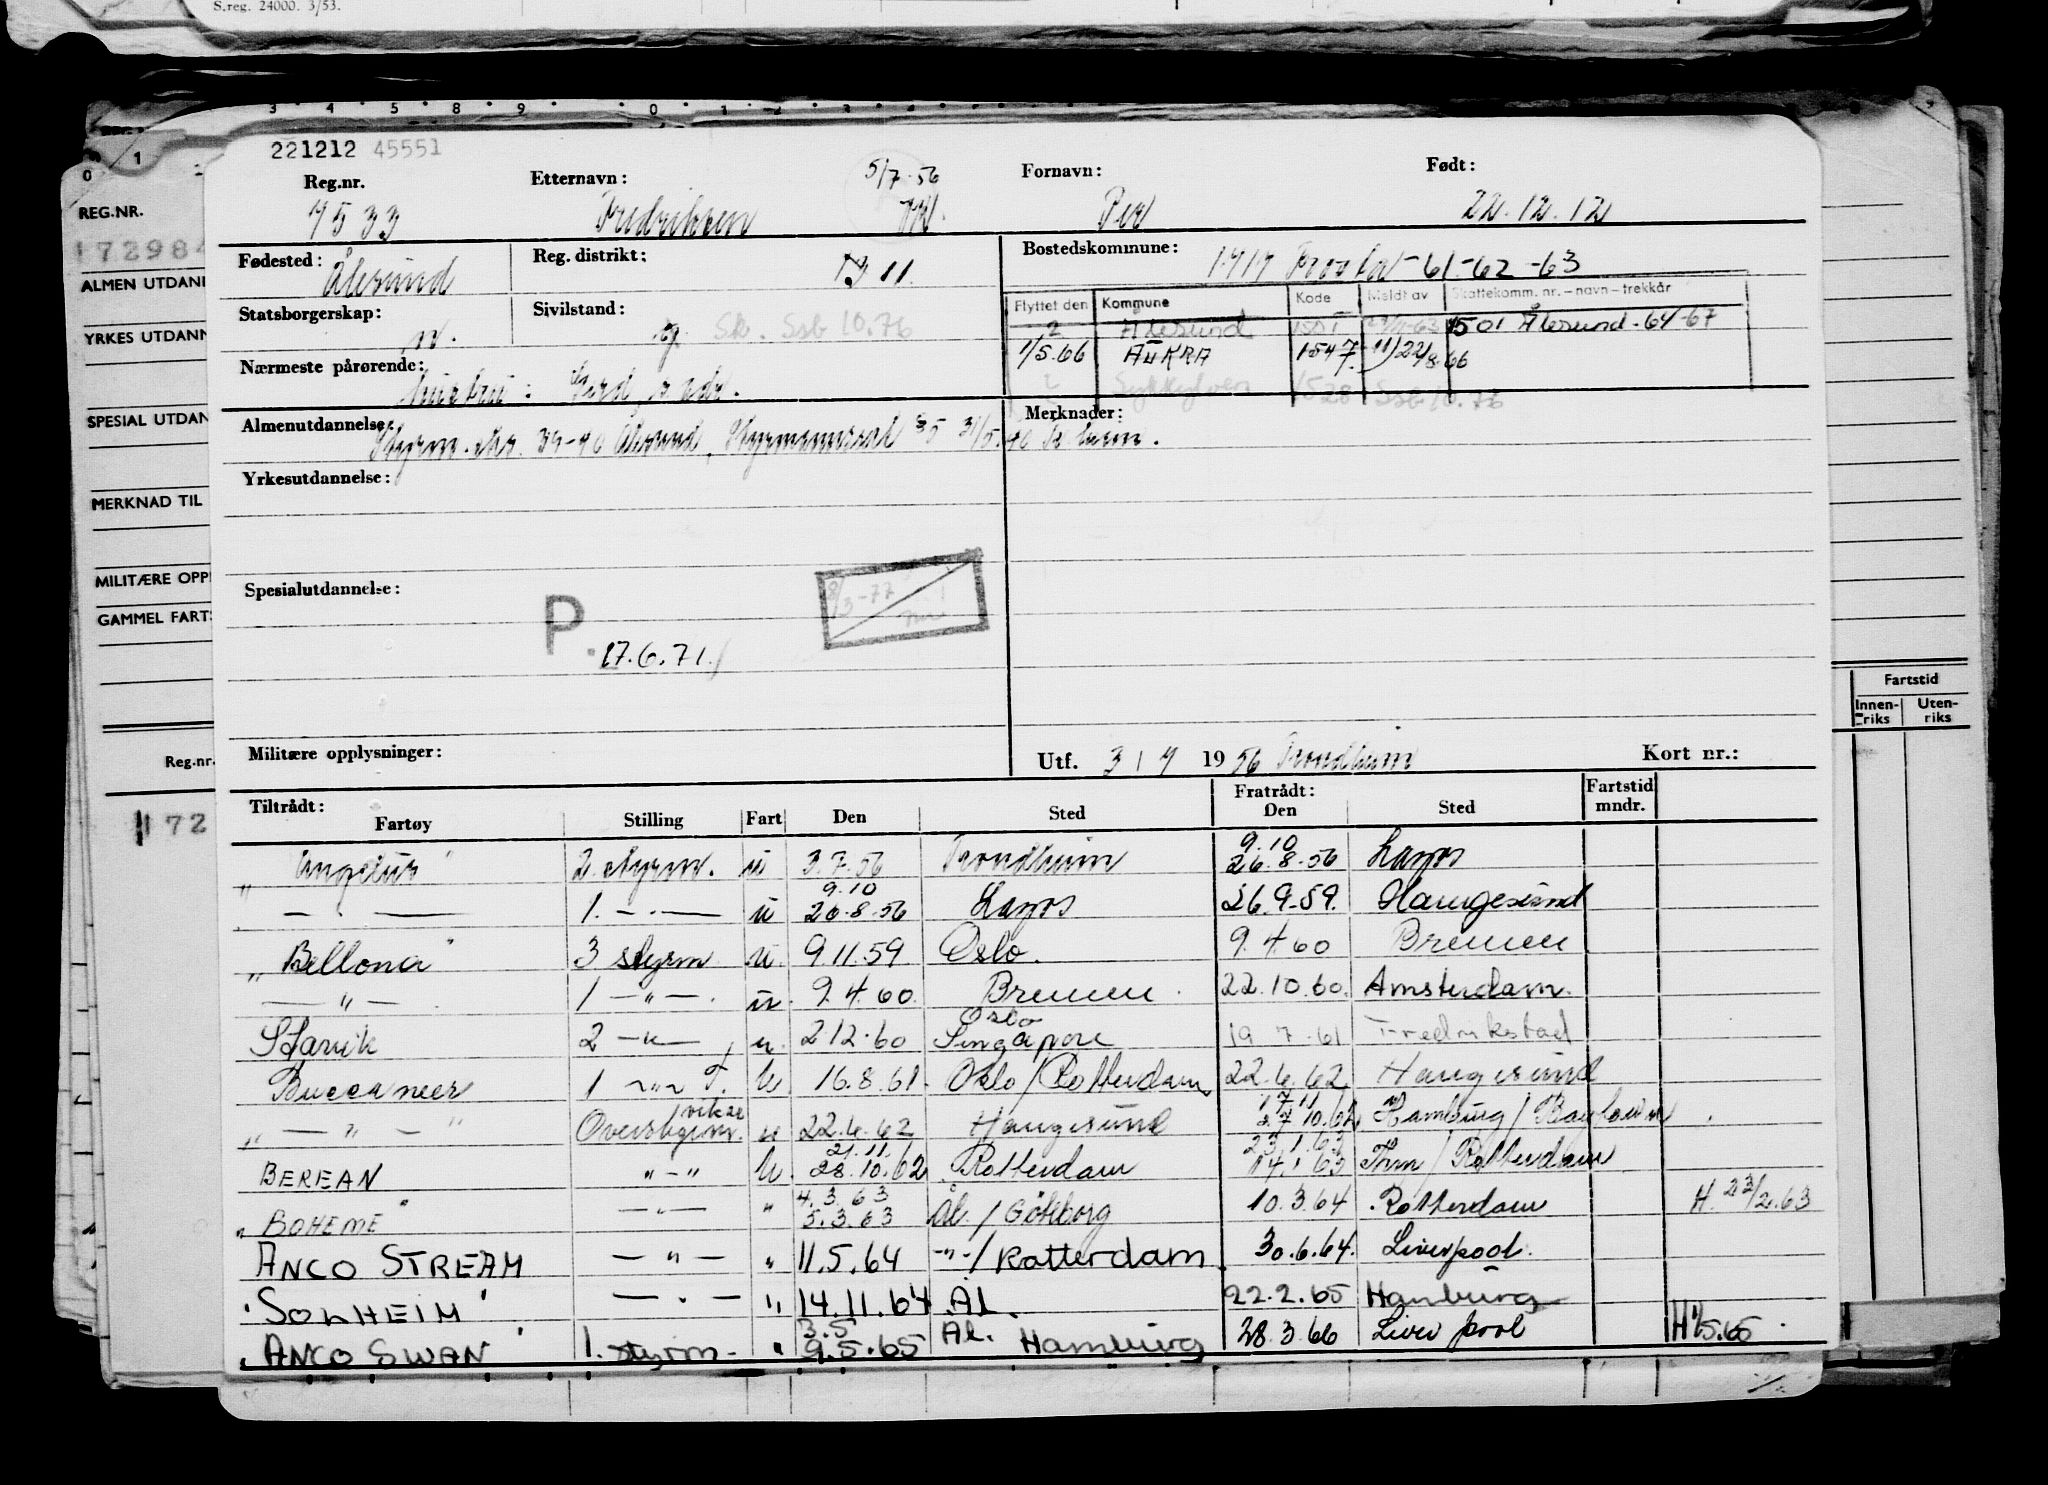 S.reg. 24000. 3/53.
221212 45551
Reg.nr. Etternavn: 5/7-56 Fornavn: Født:
7533 Fredriksen Per 22.12.12
Fødested: Ålesund Reg. distrikt: 11. Bostedskommune: 1717 Frosta -61-62-63
Flyttet den Kommune Kode Meldt av Skattekomm. nr. – navn – trekkår
Statsborgerskap: n. Sivilstand: g. Sk. Ssb 10.76
2 Ålesund 1501 1501 Ålesund-64-67
1/5.66 AUKRA 1547 11/22/8-66
Sykkylven 1528 Ssb 10.76
Nærmeste pårørende: hustru: Gerd, s. adr.
Almenutdannelse: Styrm.sk. 39-40 Ålesund, Merknader:
Yrkesutdannelse:
Spesialutdannelse:
8/3-77
P. 17.6.71.
Militære opplysninger: Utf. 3/7 1956 Trondheim Kort nr.:
Tiltrådt: Fratrådt: Fartstid
Fartøy Stilling Fart Den Sted Den Sted mndr.
"Angelus" 2. styrm. u 3.7.56 Trondheim 9.10 26.8.56 Lagos
— . — 1. — . — u 9.10 26.8.56 Lagos 26.9.59. Haugesund
"Bellona" 3 styrm u. 9.11.59 Oslo. 9.4.60 Bremen
— " — 1 — " — . u. 9.4.60. Bremen. 22.10.60. Amsterdam.
Starvik 2 — " — u. 2.12.60 Oslo Singapore 19.7.61 Fredrikstad
Buccaneer 1 — " — T. U. 16.8.61. Oslo/Rotterdam 22.6.62 Haugesund
" — " — " Overstyrm. vikar u 22.6.62 Haugesund 17.11 27.10.62 Hamburg/
BEREAN " - " U. 21.11. 28.10.62 Rotterdam 23.1.63 14.1.63 Trm/Rotterdam
"BOHEME" — " — " 4.3.63 5.3.63 Ål./Göteborg 10.3.64 Rotterdam H. 23/2.63
ANCO STREAM — " — " 11.5.64 - " -/Rotterdam 30.6.64. Liverpool.
"SOLHEIM" — " — " 14.11.64 ÅL. 22.2.65 Hamburg
"ANCO SWAN" 1. styrm- " 3.5 9.5.65 Ål. Hamburg 28.3.66 Liverpool H 1/5.65
REG.NR.
17298
ALMEN UTDAN
YRKES UTDANN
SPESIAL UTDAN
MERKNAD TIL
MILITÆRE OPP
GAMMEL FARTS
Reg.nr.
172
Fartstid
Innen-riks Uten-riks